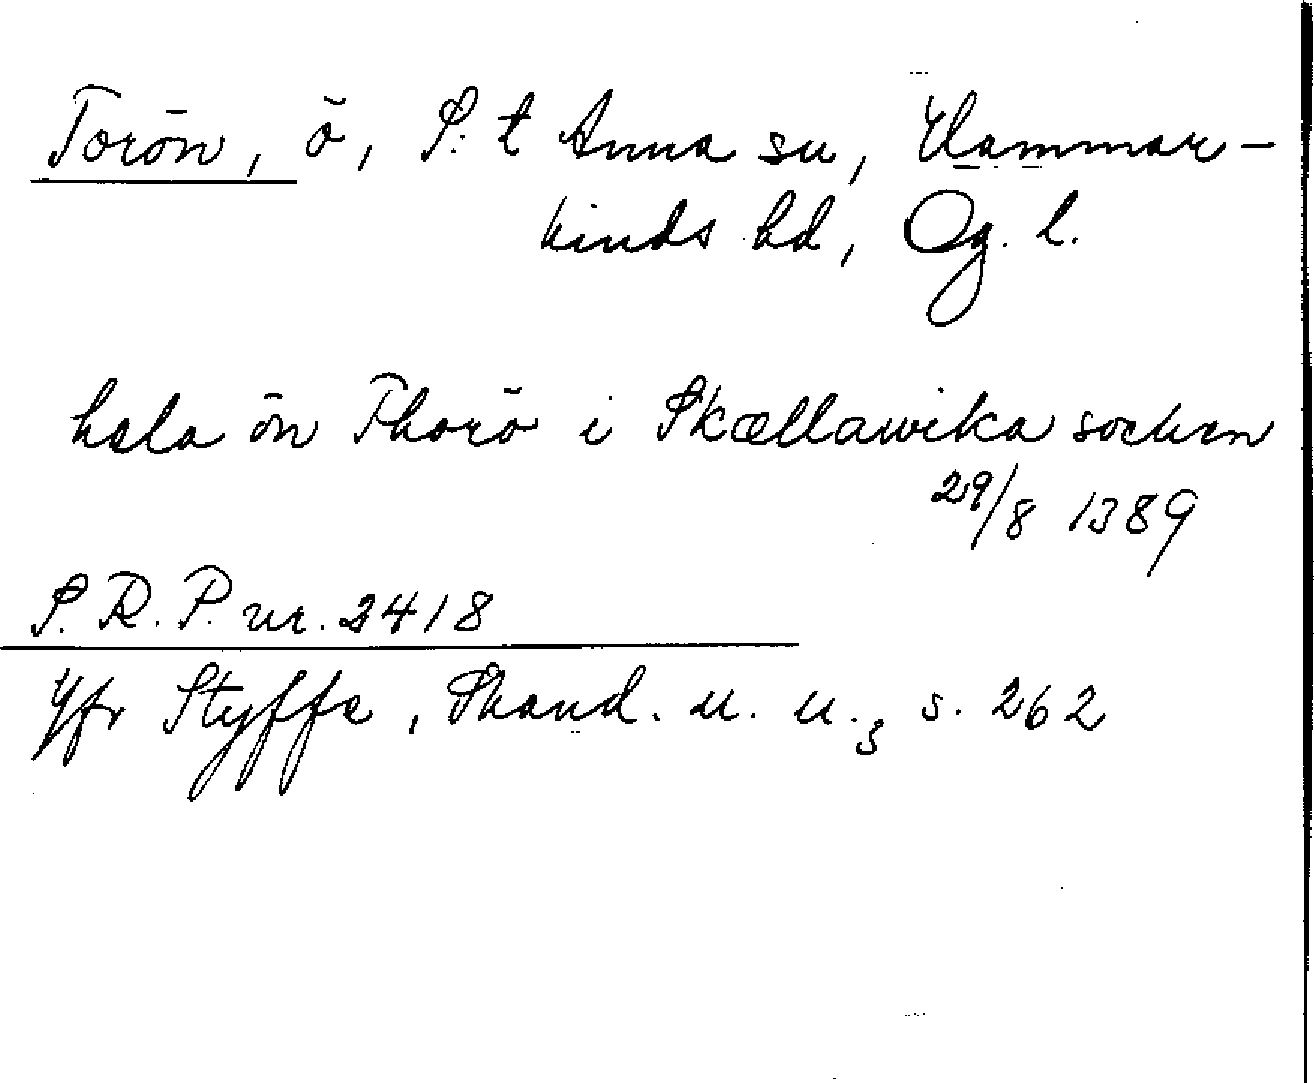 Torön, ö, S:t Anna sn, Hammar-
kinds hd, Ög. l.
hela ön Thorö i Skællawika socken
29/8 1389
S.R.P. nr. 2418
Jfr Styffe, Skand. u. u.3 s. 262